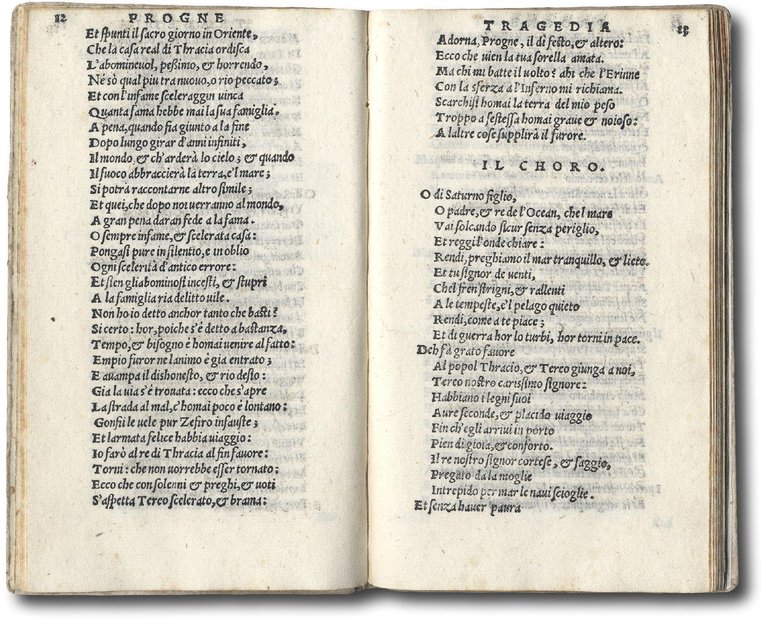 12 PROGNE
Et spunti il sacro giorno in Oriente,
Che la casa real di Thracia ordisca
L'abomineuol, peßimo, & horrendo,
Né sò qual piu tra nuouo, o rio peccato;
Et con l'infame sceleraggin uinca
Quanta fama hebbe mai la sua famiglia.
A pena, quando fia giunto a la fine
Dopo lungo girar d'anni infiniti,
Il mondo, & ch'arderà lo cielo; & quando
Il fuoco abbraccierà la terra, e'l mare;
Si potrà raccontarne altro simile;
Et quei, che dopo noi uerranno al mondo,
A gran pena daran fede a la fama.
O sempre infame, & scelerata casa:
Pongasi pure in silentio, e in oblio
Ogni scelerità d'antico errore:
Et sien gli abominosi incesti, & stupri
A la famiglia ria delitto uile.
Non ho io detto anchor tanto che basti?
Si certo: hor, poiche s'è detto a bastanza,
Tempo, & bisogno è homai uenire al fatto:
Empio furor ne l'animo è gia entrato;
E auampa il dishonesto, & rio desio:
Gia la uia s'è trouata: ecco che s'apre
La strada al mal, e'homai poco è lontano:
Gonfii le uele pur Zefiro infauste;
Et l'armata felice habbia uiaggio:
Io farò al re di Thracia al fin fauore:
Torni: che non uorrebbe esser tornato:
Ecco che con solenni & preghi, & uoti
S'aspetta Tereo scelerato, & brama:
TRAGEDIA 13
Adorna, Progne, il dì festo, & altero:
Ecco che uien la tua sorella amata.
Ma chi mi batte il uolto? ahi che l'Erinne
Con la sferza a l'Inferno mi richiama.
Scarchisi homai la terra del mio peso
Troppo a se stessa homai graue & noioso:
A l'altre cose supplirà il furore.
IL CHORO.
O di Saturno figlio,
O padre, & re de l'Ocean, che'l mare
Vai solcando sicur senza periglio,
Et reggi l'onde chiare:
Rendi, preghiamo il mar tranquillo, & lieto.
Et tu signor de uenti,
Che'l fren strigni, & rallenti
A le tempeste, e'l pelago quieto
Rendi, come a te piace;
Et di guerra hor lo turbi, hor torni in pace.
Deh fà grato fauore
Al popol Thracio, & Tereo giunga a noi,
Tereo nostro carissimo signore:
Habbiano i legni suoi
Aure seconde, & placido uiaggio
Fin ch'egli arriui in porto
Pien di gioia, & conforto.
Il re nostro signor cortese, & saggio,
Pregato da la moglie
Intrepido per mar le naui scioglie.
Et senza hauer paura